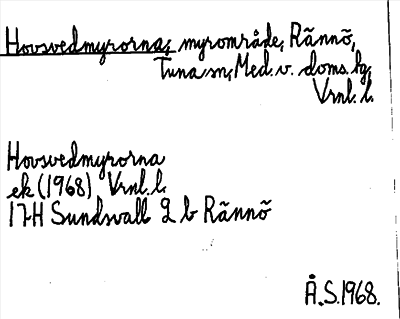 Hovsvedmyrorna, myrområde, Rännö,
Tuna sn, Med. v. doms. hg,
Vrnl. l.
Hovsvedmyrorna
ek (1968) Vrnl. l.
17H Sundsvall 2 b Rännö
Å.S. 1968.